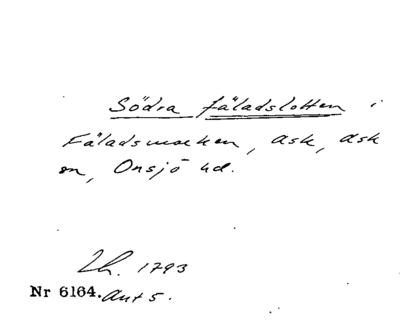 Södra fäladslotten i
Fäladsmarken, Ask, Ask
sn, Onsjö hd.
Lh. 1793
Nr 6164. Ant 5.